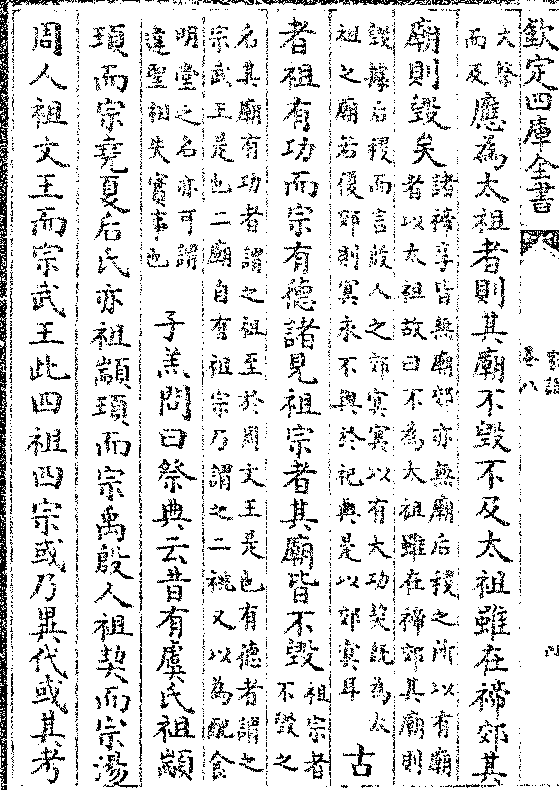 欽定四庫全書
家語
卷八
大祭
而及
應為太祖者則其廟不毀不及太祖雖在禘郊其
廟則毀矣
諸禘享皆無廟郊亦無廟后稷之所以有廟
者以太祖故曰不為太祖雖在禘郊其廟則
毀據后稷而言殷人之郊冥冥以有大功契既為太
祖之廟若復郊則冥永不與於祀典是以郊冥耳
古
者祖有功而宗有德諸見祖宗者其廟皆不毀
祖宗者
不毀之
名其廟有功者謂之祖至於周文王是也有德者謂之
宗武王是也二廟自有祖宗乃謂之二祧又以為配食
明堂之名亦可謂
違聖相失實事也
子羔問曰祭典云昔有虞氏祖顓
頊而宗堯夏后氏亦祖顓頊而宗禹殷人祖契而宗湯
周人祖文王而宗武王此四祖四宗或乃異代或其考